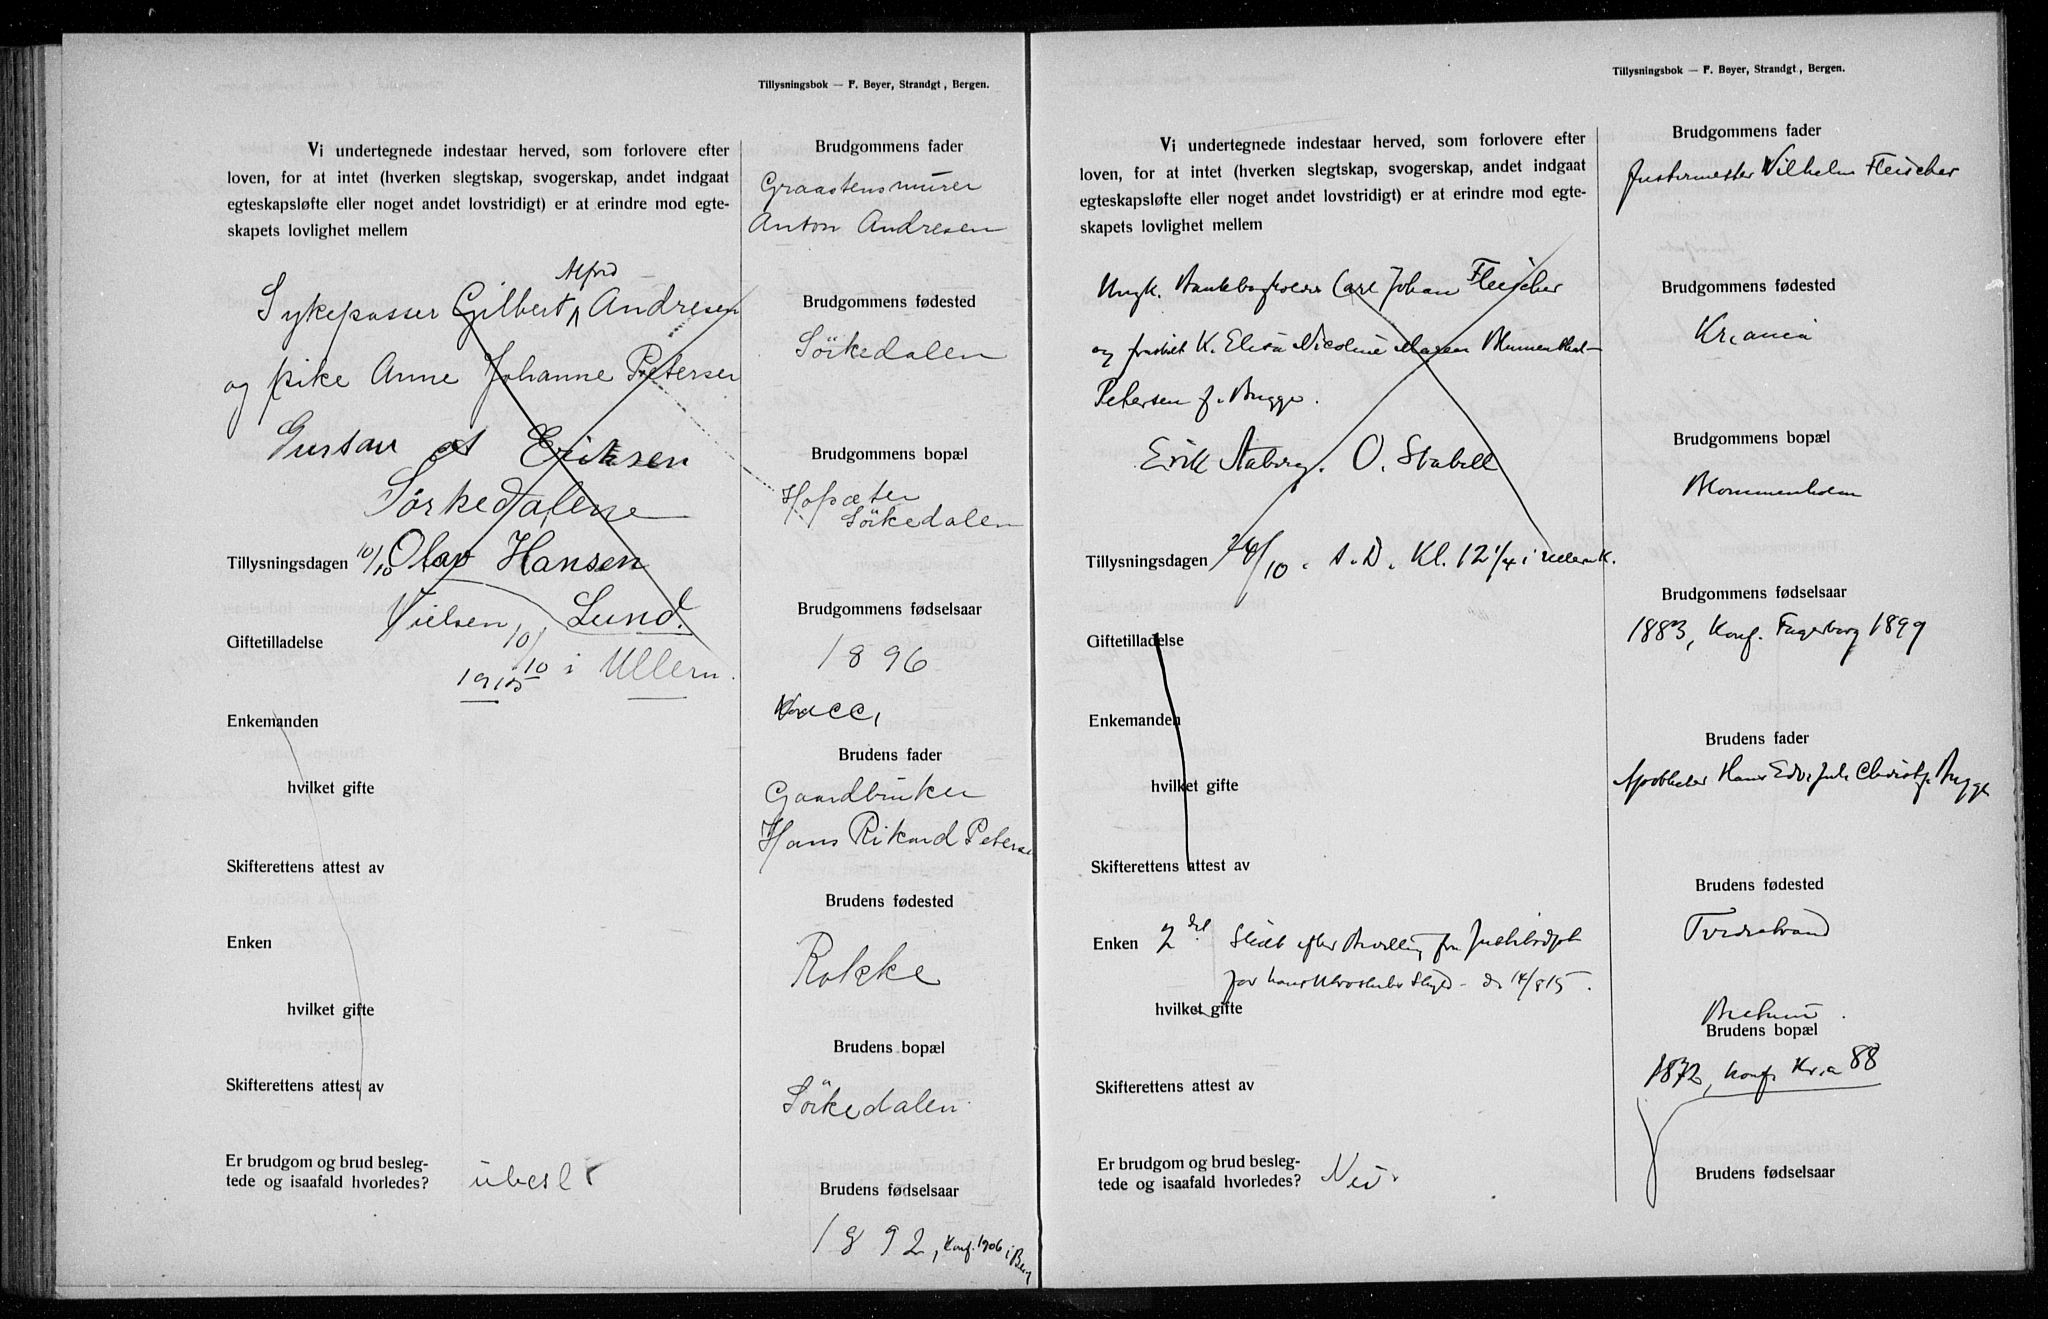 Tillysningsbok — F. Beyer, Strandgt, Bergen.
Vi undertegnede indestaar herved, som forlovere efter
loven, for at intet (hverken slegtskap, svogerskap, andet indgaat
egteskapsløfte eller noget andet lovstridigt) er at erindre mod egte-
skapets lovlighet mellem
Alfred
Sykepasser Gilbert ^ Andresen
og pike Anne Johanne Petersen
Gustav Eriksen
Sørkedalene
Tillysningsdagen 10/10 Olav Hansen
Nielsen Lund.
Giftetilladelse
10/10 1915 i Ullern.
Enkemanden
hvilket gifte
Skifterettens attest av
Enken
hvilket gifte
Skifterettens attest av
Er brudgom og brud besleg-
tede og isaafald hvorledes? ubesl
Brudgommens fader
Graastensmurer
Anton Andresen
Brudgommens fødested
Sörkedalen
Brudgommens bopæl
Hopsæter
Sörkedalen
Brudgommens fødselsaar
1896
Vacc,
Brudens fader
Gaardbruker
Hans Rikard Peterse
Brudens fødested
Rokke
Brudens bopæl
Sörkedalen
Brudens fødselsaar
1892, Konf. 1906 i Berg
Tillysningsbok — F. Beyer, Strandgt, Bergen.
Vi undertegnede indestaar herved, som forlovere efter
loven, for at intet (hverken slegtskap, svogerskap, andet indgaat
egteskapsløfte eller noget andet lovstridigt) er at erindre mod egte-
skapets lovlighet mellem
Ungk. Bankbogholder Carl Johan Fleischer
og fraskilt K. Elisa Nicoline Maren Blumenthal-
Petersen f. Bugge.
Erik Aaberg. O. Stabell
Tillysningsdagen 24/10. s. D. Kl. 12 1/4 i Ullern K.
Giftetilladelse
Enkemanden
hvilket gifte
Skifterettens attest av
Enken 2det Skilt efter Bevilling fra Justitsdept
for Kristiania d 14/8 15.
hvilket gifte
Skifterettens attest av
Er brudgom og brud besleg-
tede og isaafald hvorledes? Nei.
Brudgommens fader
Justermester Vilhelm Fleischer
Brudgommens fødested
Kr.ania
Brudgommens bopæl
Blommenholm
Brudgommens fødselsaar
1883, Konf. Fagerborg 1899
Brudens fader
Apotheker Hans Edv. Jul. Christ. Bugge
Brudens fødested
Tvedestrand
Bærum.
Brudens bopæl
1872, Konf. Kr.a 88
Brudens fødselsaar